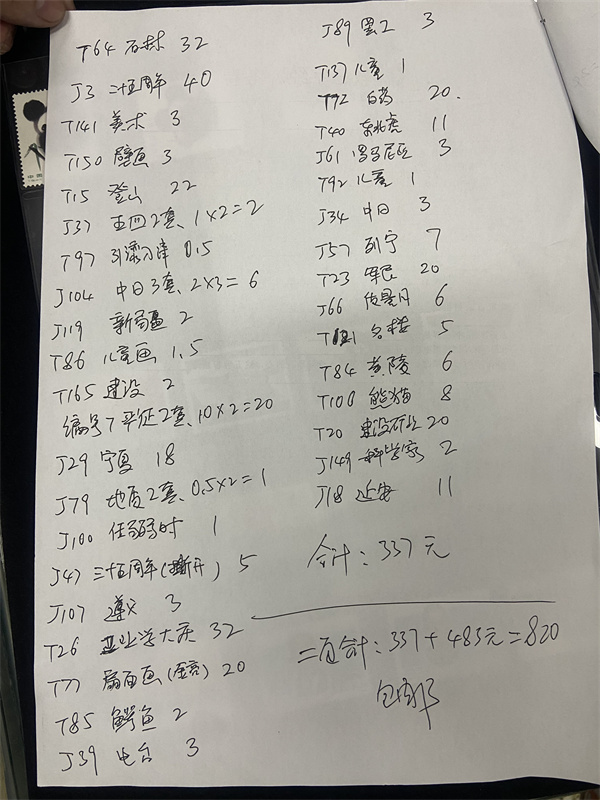 T64 石林 32
J3 二十五周年 40
T141 美术 3
T150 壁画 3
T15 登山 22
J37 五四2套、1×2=2
T97 引滦入津 0.5
J104 中日3套、2×3=6
J119 新疆 2
T86 儿童画 1.5
T165 建设 2
编号T 平征2套、10×2=20
J29 宁夏 18
J79 地质2套、0.5×2=1
J100 任弼时 1
J47 三十五周年(撕开) 5
J107 遵义 3
T26 工业学大庆 32
T77 扇面画(金亮) 20
T85 鳄鱼 2
J39 电台 3
J89 罢工 3
T137 儿童 1
T92 白药 20.
T40 东北虎 11
J61 罗马尼亚 3
T92 儿童 1
J34 中日 3
J57 列宁 7
T23 军民 20
J66 传是月 6
T121 名楼 5
T84 黄陵 6
T100 熊猫 8
T20 建设矿业 20
J149 科学家 2
J18 延安 11
合计:337元
二页合计:337+483元=820
包邮
中国